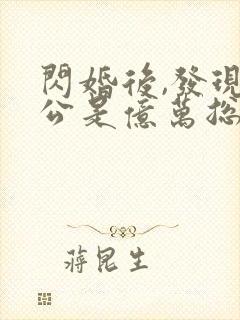 閃婚後,發現
公是億萬總
蔣昆生